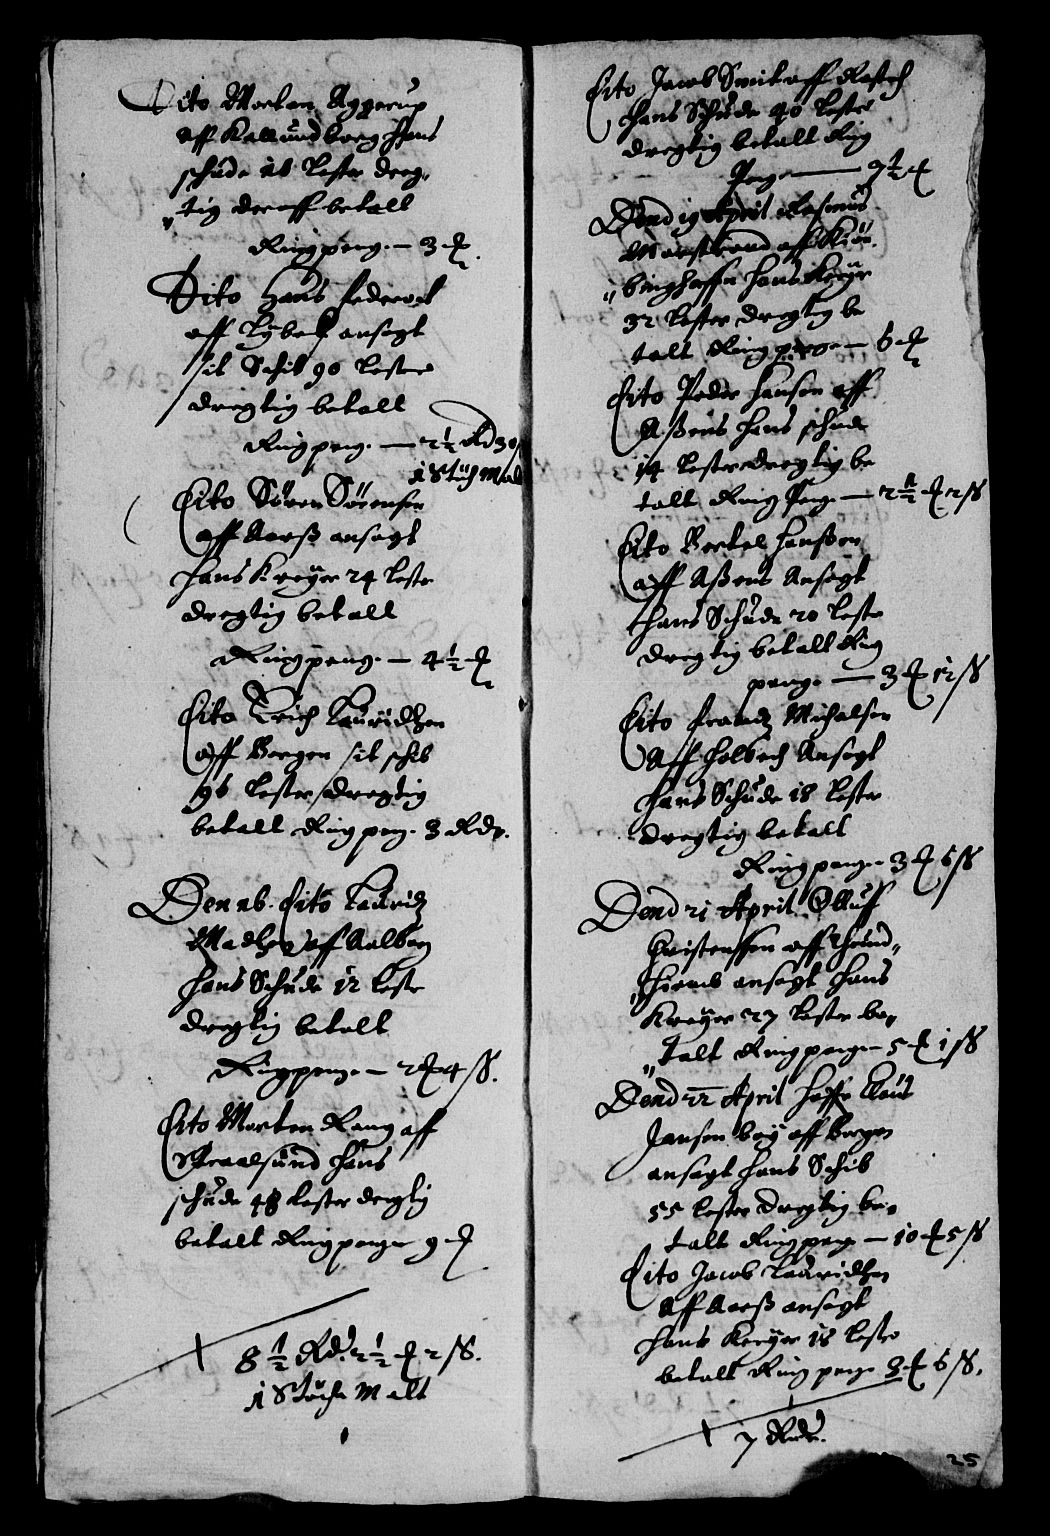 Dito Morten Aggerup
aff Kallundborg hans
schude 16 lester dreg¸
tig deraff betalt
Ringpenge — 3 ₰.
Dito Hans
aff Lybeck ansagt
sit Schib 90 lester
dregtig betalt
Ringpeng. — 2½ Rd 30
1 Stüch Malt
Dito Sören Sörensen
aff Aarß ansagt
hans Kreyer 24 leste
dregtig betalt
Ringpenge — 4½ ₰
Dito Erich Lauridtzen
aff Bergen sit schib
96 lester dregtig
betalt Ringpeng. 3 Rdr.
Den 16. Dito Lauridz
Madtzen aff Aalborg
hans Schude 12 leste
dregtig betalt
Ringpenge — 2 ₰ 4 ß.
Dito Morten Rang aff
Straalsund hans
schude 48 lester dregtig
betalt Ringpenge 9 ₰
8½ Rd. 2½ ₰ 2 ß.
1 Stüche Malt
Dito Jacob Smit aff Rostoch
hans Schude 40 lester
dregtig betalt Ring
Penge — 7½ ₰
Dend 19 April Rasmus
Marstrand aff Kiö¸
binghaffn hans Kreyer
32 lester dregtig be
talt Ringpenge — 6 ₰
Dito Peder Hansen aff
Aßens hans schude
14 lester dregtig be
talt Ring Peng. — 2½ ₰ 2 ß
Dito Bertel Hanßen
aff Aßens Ansagt
hans Schude 20 leste
dregtig betalt Ring
penge — 3 ₰ 12 ß
Dito Frandz Michelsen
Aff Holbech Ansagt
hans Schude 18 lester
dregtig betalt
Ringpenge 3 ₰ 6 ß
Dend 21 April Olluff
Christenßen aff Thrund¸
hiemb ansagt hans
Kreyer 27 lester be¸
talt Ringpenge — 5 ₰ 1 ß
Dend 22 April
Jansen aff Bergen
ansagt hans Schib
55 lester dregtig be¸
talt Ringpeng — 10 ₰ 5 ß
Dito Jacob Lauridtzen
Aff Aarß ansagt
hans Kreyer 18 lester
betalt Ringpeng. 3 ₰ 6 ß.
7 Rdr.
25